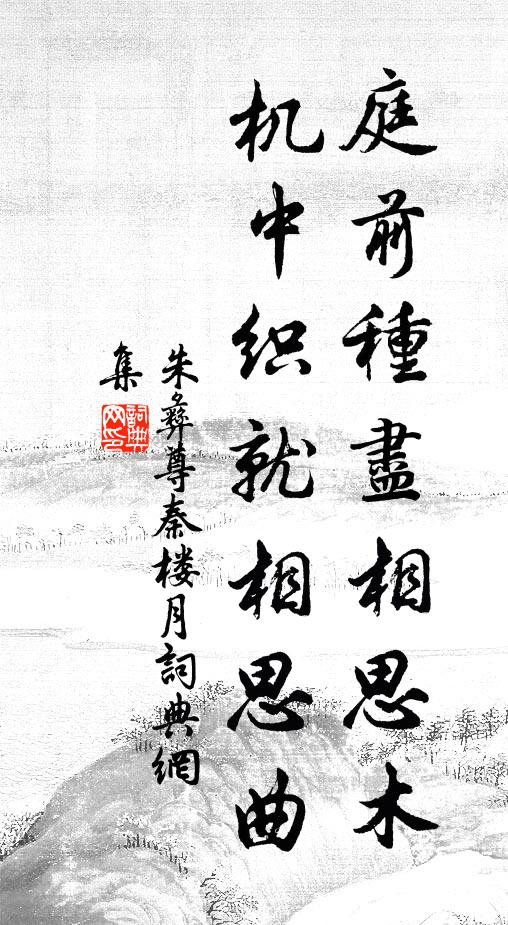 庭前種盡相思木
机中织就相思曲
朱彝尊秦楼月詞典網
集
詞典
网印